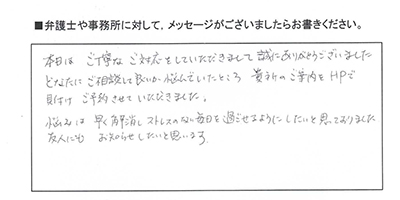 ■弁護士や事務所に対して，メッセージがございましたらお書きください。
本日は ご丁寧な ご対応をしていただきまして 誠にありがとうございました
どなたに ご相談して良いか 悩んでいたところ 貴所のご案内をHPで
見付け ご予約させて いただきました。
悩みは 早く解消し ストレスのない毎日を過ごせるようにしたいと思っておりました
友人にも お知らせしたいと思います